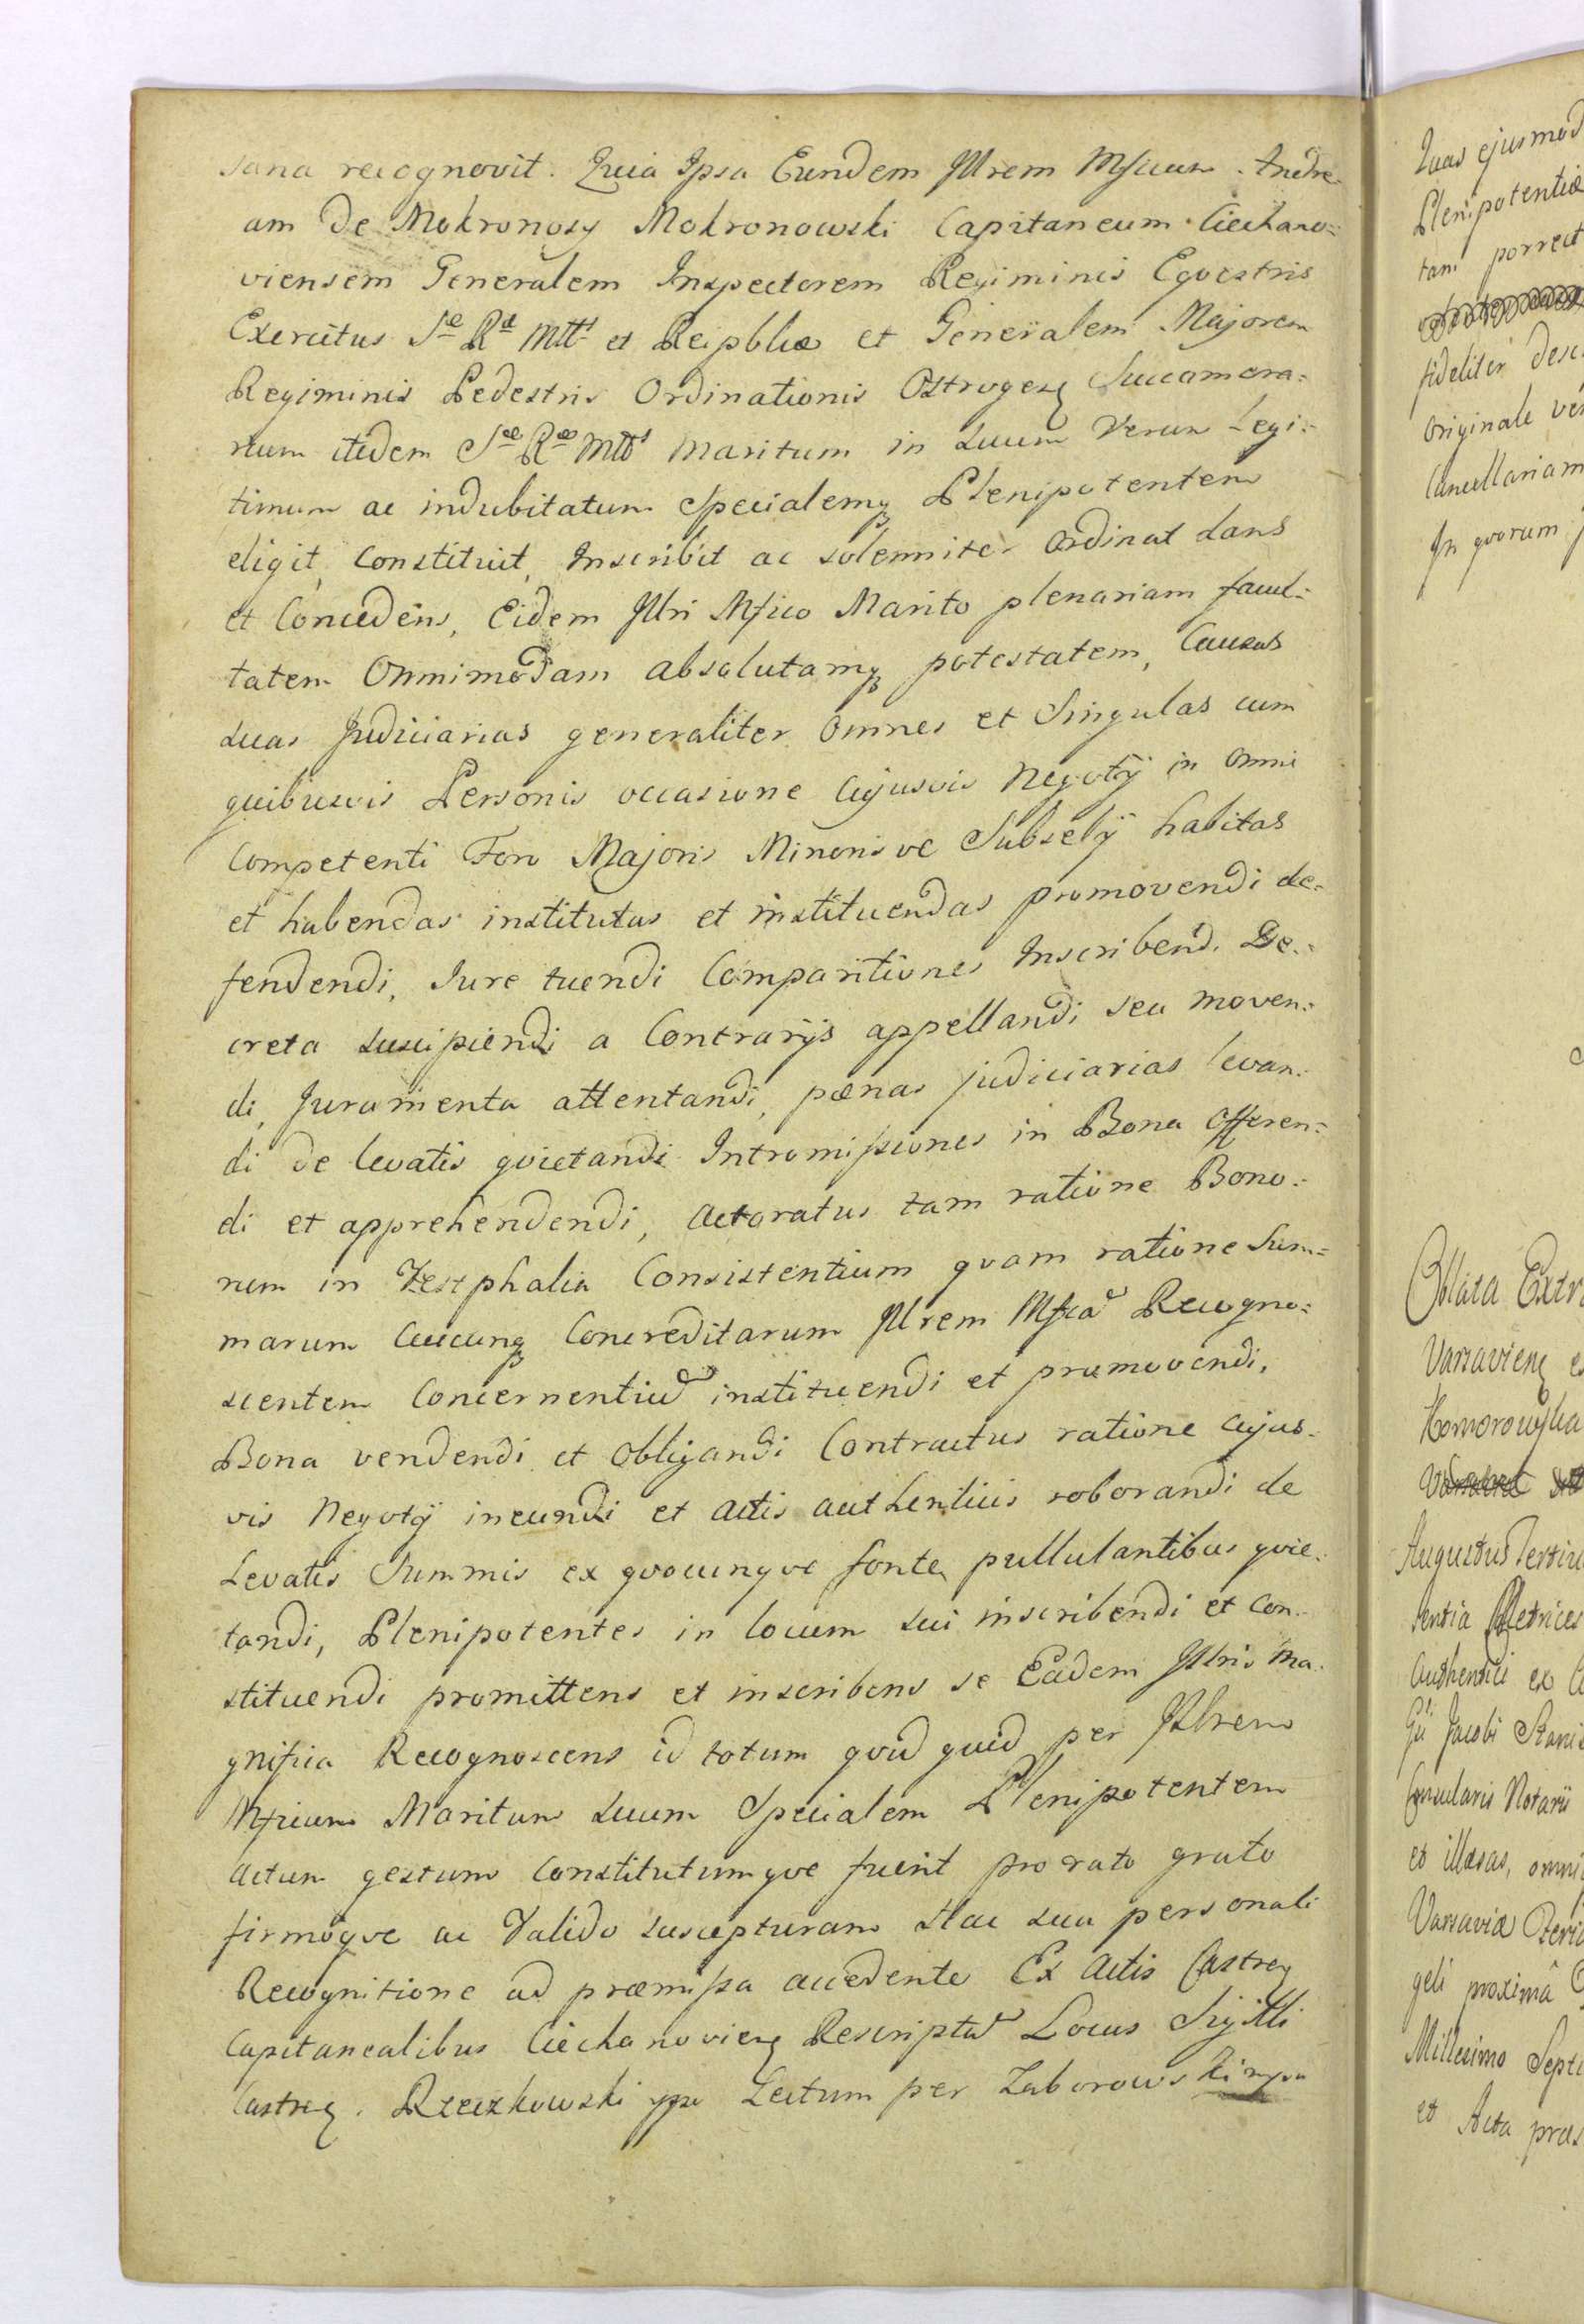 sana recognovit. Quia Ipsa Eundem Jllrem Mficum Andre-
am de Mokronosy Mokronowski Capitaneum Ciechano=
viensem Generalem Inspectorem Regiminis Eqvestris
Exercitus Sæ Ræ Mttis et Reipblicæ et Generalem Majorem
Regiminis Pedestris Ordinationis Ostrogens Succamera=
rium itidem Sæ Ræ Mttis Maritum in suum Verum Legi=
timum ac indubitatum Specialemq Plenipotentem
eligit, Constituit, Inscribit ac solemniter Ordinat dans
et Concedens, Eidem Jllri Mfico Marito plenariam facul=
tatem Omnimodam absolutamq potestatem, Causas
suas Judiciarias generaliter Omnes et Singulas cum
quibusvis Personis occasione cujusvis Negotÿ in omni
Competenti Foro Majoris Minorisve Subselÿ habitas
et habendas institutas et instituendas promovendi de=
fendendi, Jure tuendi Comparitiones Inscribend. De=
creta suscipiendi a Contrarÿs appellandi seu moven=
di, Juramenta attentandi, pænas judiciarias levan=
di de levatis qvietandi Intromissiones in Bona Offeren=
di et apprehendendi, Actoratus tam ratione Bono=
rum in Vestphalia Consistentium qvam ratione Sum=
marum Cuicunq Concreditarum Jllrem Mficã Recogno=
scentem Concernentiũ instituendi et promovendi,
Bona vendendi et obligandi Contractus ratione cujus=
vis Negotÿ ineundi et actis authenticis roborandi de
Levatis Summis ex qvocunqve fonte pullulantibus qvie=
tandi, Plenipotentes in locum sui inscribendi et con=
stituendi promittens et inscribens se Eadem Jllris Ma=
gnifica Recognoscens id totum qvid quid per Jllrem
Mficum Maritum suum Specialem Plenipotentem
actum gestum Constitutumqve fuerit pro rato grato
firmoqve ac Valido suscepturam Hac sua personali
Recognitione ad præmissa accedente Ex Actis Castren
Capitanealibus Ciechanovien Rescriptũ Locus Sigilli
Castren. Rzeczkowski mpp Lectum per Zaborowski mpp
Quas ejusmod
Plenipotentiæ
tam porrect
fideliter desc
originale ver
Cancellariam
In qvorum
Oblata Extr
Varsavien e
Komorowska
Augustus Tertiu
Authentici ex
Jacobi Stanis
Consularis Notarii
et illæsas, omni
Varsaviæ Feria
geli proximâ
Millesimo Septi
et Acta præs